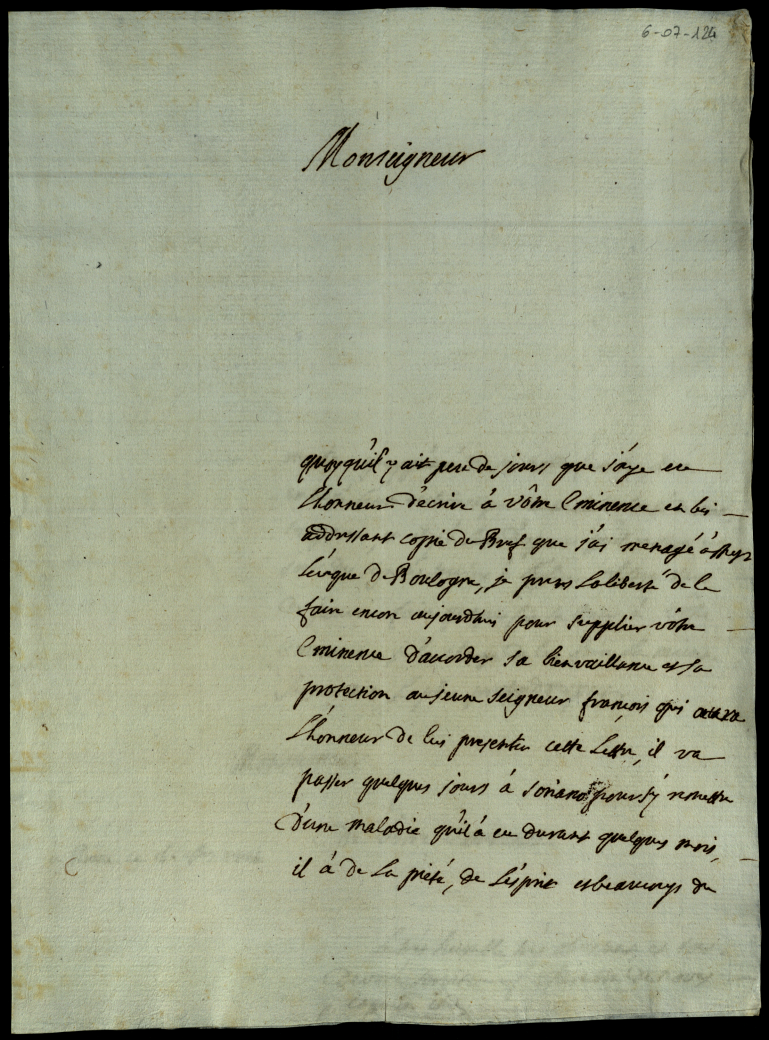 6-07-124
Monseigneur
quoyqu'il y ait peu de jours que j'aye eu
l'honneur d'écrire à vôtre Eminence en lui
addressant copie du Bref que j'ai menagé à
l'évêque de Boulogne, je prens la liberté de le
faire encor aujourdhui pour supplier vôtre
Eminence d'accorder sa bienvaillance et sa
protection au jeune seigneur francois qui aura
l'honneur de lui presenter cette Lettre, il va
passer quelques jours à Soriano pour s'y remettre
d'une maladie qu'il à eu durant quelques mois,
il à de la pieté, de l'esprit et beaucoup de